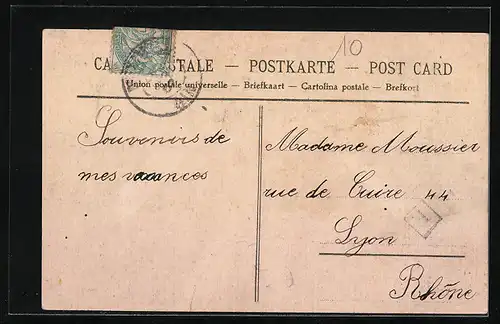 10
CARTE POSTALE — POSTKARTE — POST CARD
Union postale universelle — Briefkaart — Cartolina postale — Brefkort
Souvenirs de
mes vacances
Madame Moussier
rue de Cuire 44
Lyon
Rhône
1